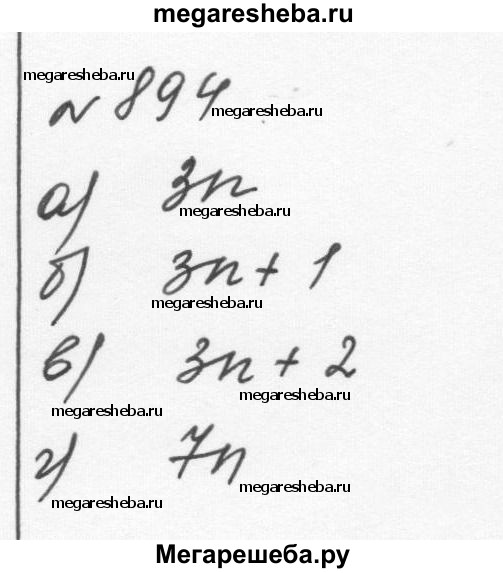 megaresheba.ru
megaresheba.ru
№ 894
megaresheba.ru
а) 3n
megaresheba.ru
б) 3n + 1
megaresheba.ru
в) 3n + 2
megaresheba.ru
megaresheba.ru
г) 7n
megaresheba.ru
megaresheba.ru
Мегарешеба.ру